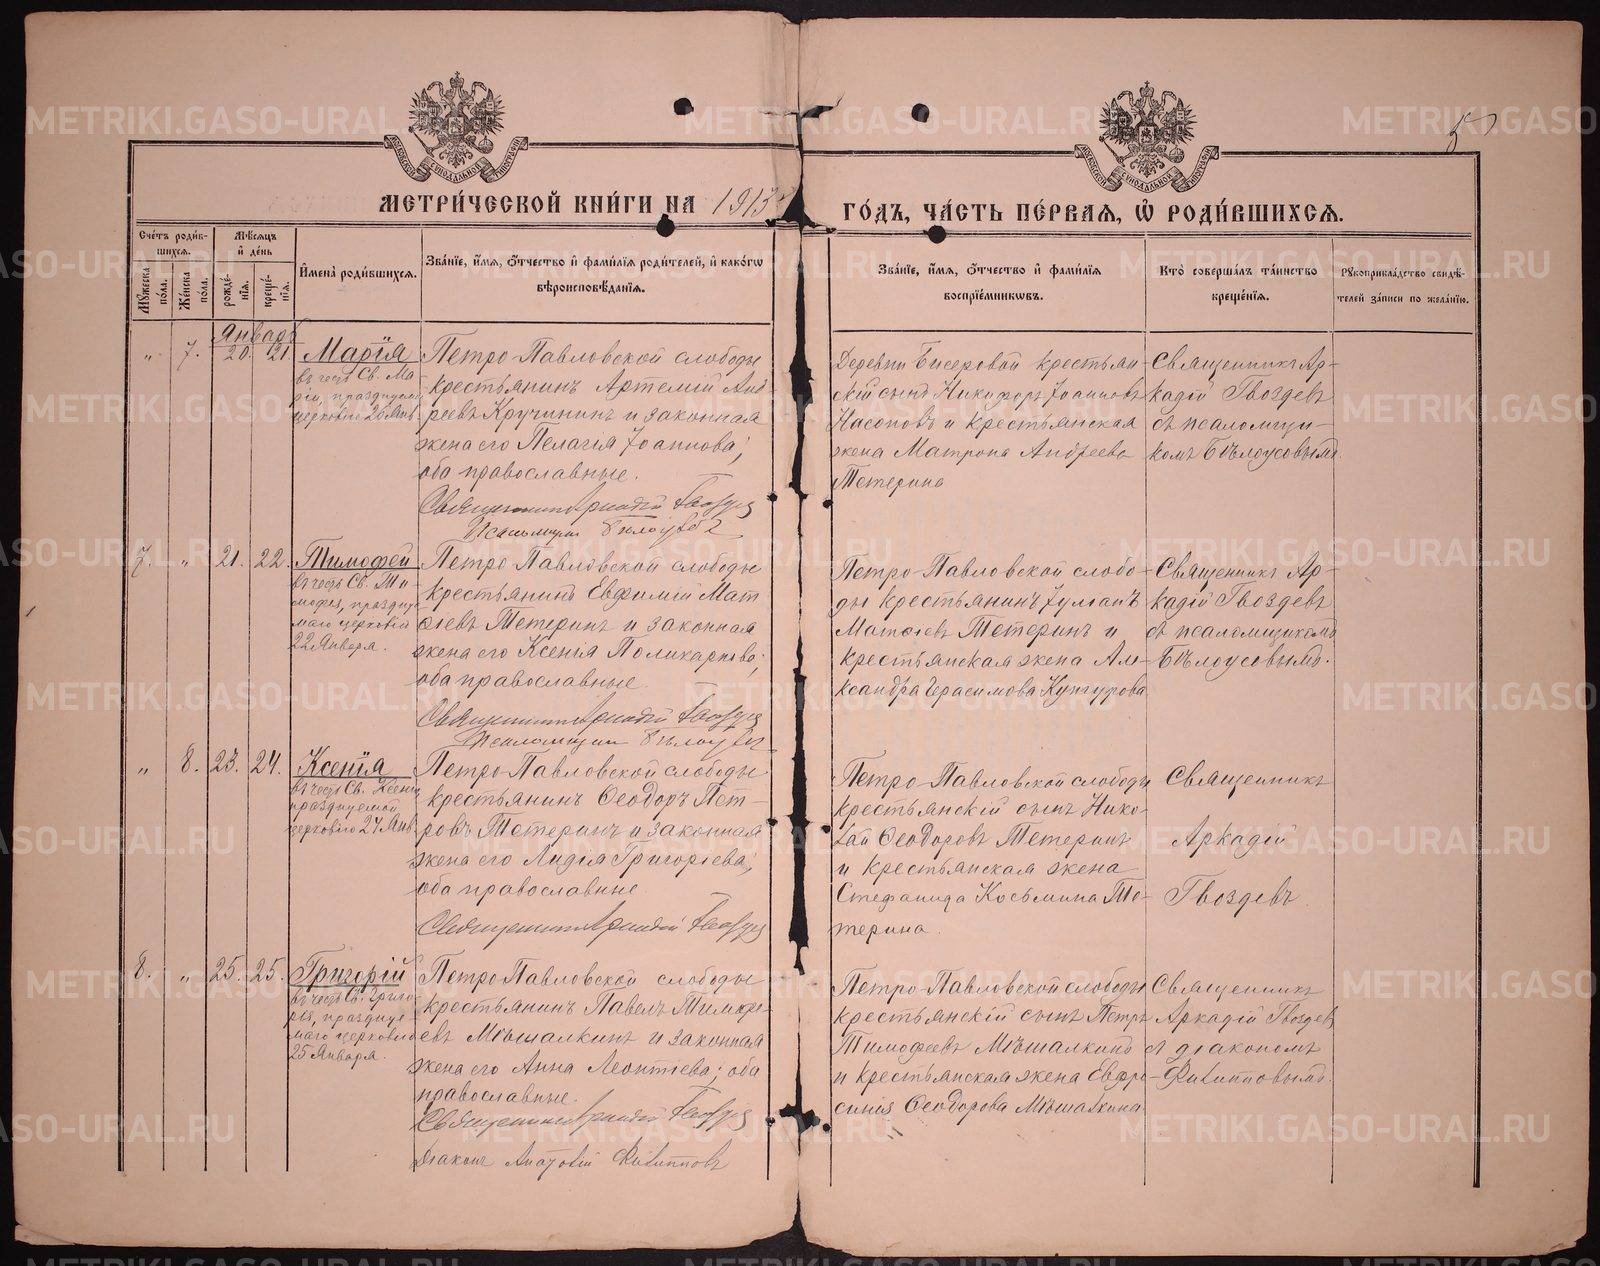 5
МЕТРИ́ЧЕСКОЙ КНИ́ГИ НА 1913
ГО́ДЪ, ЧА́СТЬ ПЕ́РВАѦ, Ѿ РОДИ́ВШИХСѦ.
Сче́тъ роди́в-
шихсѧ.
Мꙋ́жеска по́ла.
Же́нска по́ла.
Мѣ́сѧцъ
и҆ де́нь
рожде́-нїѧ.
креще́-нїѧ.
И҆мена̀ роди́вшихсѧ.
Зва́нїе, и҆́мѧ, ѻ҆́тчество и҆ фами́лїѧ роди́телей, и҆ како́гѡ
вѣроисповѣ́данїѧ.
Зва́нїе, и҆́мѧ, ѻ҆́тчество и҆ фами́лїѧ
воспрїе́мникѡвъ.
Кто̀ соверша́лъ та́инство
креще́нїѧ.
Рꙋкоприкла́дство свидѣ́-
телей за́писи по жела́нїю.
Январь
„ 7. 20. 21.
Марія
въ честь Св. Ма-
ріи, празднуемой
церковію 26 Янв
Петро-Павловской слободы
крестьянинъ Артемій Анд-
реевъ Кручининъ и законная
жена его Пелагія Іоаннова;
оба православные.
Священникъ Аркадій Гвоздевъ
Псаломщикъ Бѣлоусовъ
Деревни Бисеровой крестьян-
скій сынъ Никифоръ Іоанновъ
Насоновъ и крестьянская
жена Матрона Андреева
Тетерина
Священникъ Ар-
кадій Гвоздевъ
съ псаломщи-
комъ Бѣлоусовымъ
7. „ 21. 22.
Тимофей
въ честь Св. Ти-
мофея, праздну-
маго церковію
22 Января.
Петро-Павловской слободы
крестьянинъ Евфимій Мат-
ѳеевъ Тетеринъ и законная
жена его Ксенія Поликарпова;
оба православные.
Священникъ Аркадій Гвоздевъ
Псаломщикъ Бѣлоусовъ
Петро-Павловской слобо-
ды крестьянинъ Іуліанъ
Матѳеевъ Тетеринъ и
крестьянская жена Але-
ксандра Герасимова Кунгурова
Священникъ Ар-
кадій Гвоздевъ
съ псаломщикомъ
Бѣлоусовымъ.
„ 8. 23. 24.
Ксенія
въ честь Св. Ксеніи
празднуемой
церковію 24 Янв
Петро-Павловской слободы
крестьянинъ Ѳеодоръ Пет-
ровъ Тетеринъ и законная
жена его Лидія Григоріева;
оба православные.
Священникъ Аркадій Гвоздевъ
Петро-Павловской слободы
крестьянскій сынъ Нико-
лай Ѳеодоровъ Тетеринъ
и крестьянская жена
Стефанида Косьмина Те-
терина.
Священникъ
Аркадій
Гвоздевъ
8. „ 25. 25.
Григорій
въ честь Св. Григо-
рія, праздную-
маго церковію
25 Января.
Петро-Павловской слободы
крестьянинъ Павелъ Тимофе-
евъ Мѣшалкинъ и законная
жена его Анна Леонтіева; оба
православные.
Священникъ Аркадій Гвоздевъ
Діаконъ Анатолій Филипповъ
Петро-Павловской слободы
крестьянскій сынъ Петръ
Тимофеевъ Мѣшалкинъ
и крестьянская жена Евфро-
синія Ѳеодорова Мѣшалкина
Священникъ
Аркадій Гвоздевъ
съ діакономъ
Филипповымъ.
METRIKI.GASO-URAL.RU